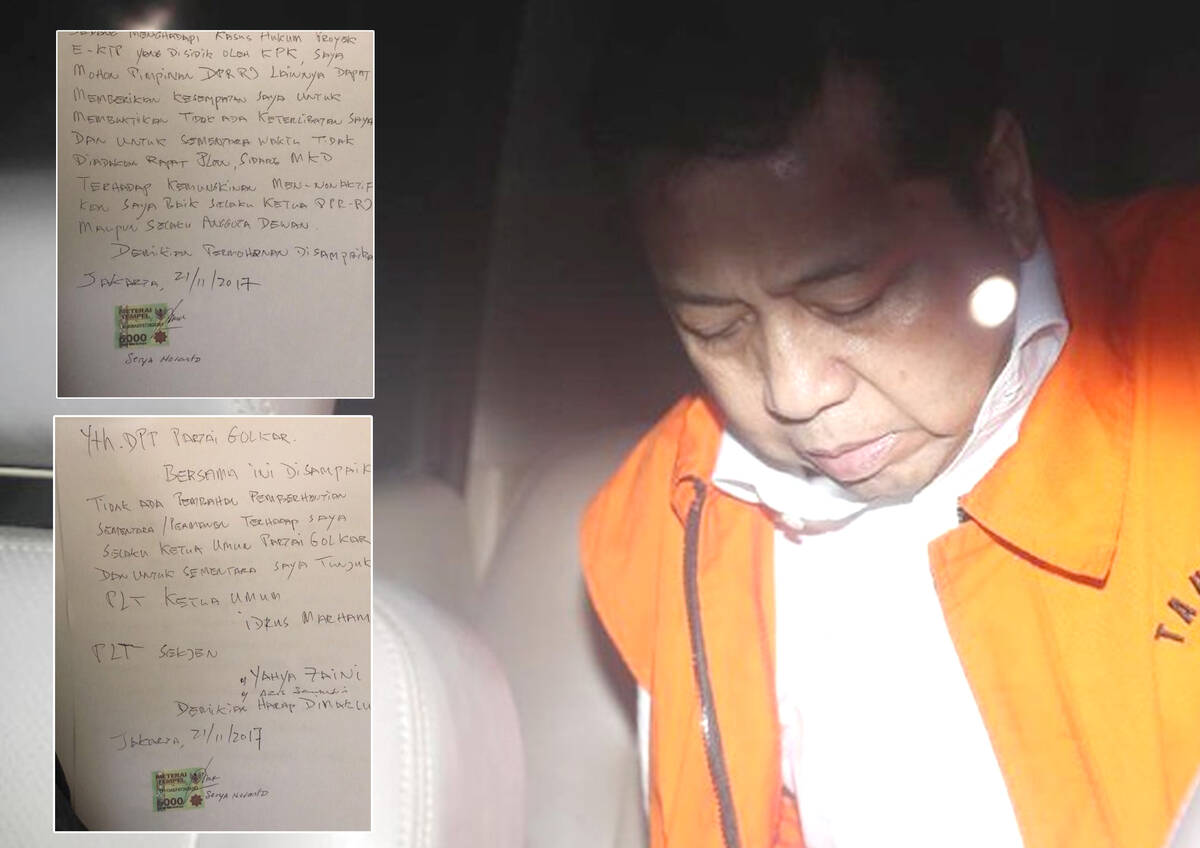 SEDANG MENGHADAPI KASUS HUKUM PROYEK
E-KTP YANG DISIDIK OLEH KPK, SAYA
MOHON PIMPINAN DPR RI LAINNYA DAPAT
MEMBERIKAN KESEMPATAN SAYA UNTUK
MEMBUKTIKAN TIDAK ADA KETERLIBATAN SAYA
DAN UNTUK SEMENTARA WAKTU TIDAK
DIADAKAN RAPAT PLENO, SIDANG MKD
TERHADAP KEMUNGKINAN MEN-NONAKTIF
KAN SAYA BAIK SELAKU KETUA DPR-RI
MAUPUN SELAKU ANGGOTA DEWAN.
DEMIKIAN PERMOHONAN DISAMPAIKA
JAKARTA, 21/11/2017
METERAI
TEMPEL
6000
Setya Novanto
Yth. DPP PARTAI GOLKAR.
BERSAMA INI DISAMPAIK
TIDAK ADA PEMBAHASAN PEMBERHENTIAN
SEMENTARA/PERMANEN TERHADAP SAYA
SELAKU KETUA UMUM PARTAI GOLKAR
DAN UNTUK SEMENTARA SAYA TUNJUK
PLT KETUA UMUM
IDRUS MARHAM
PLT SEKJEN
YAHYA ZAINI
DEMIKIAN HARAP DIMAKLU
JAKARTA, 21/11/2017
METERAI
TEMPEL
6000
Setya Novanto
TA